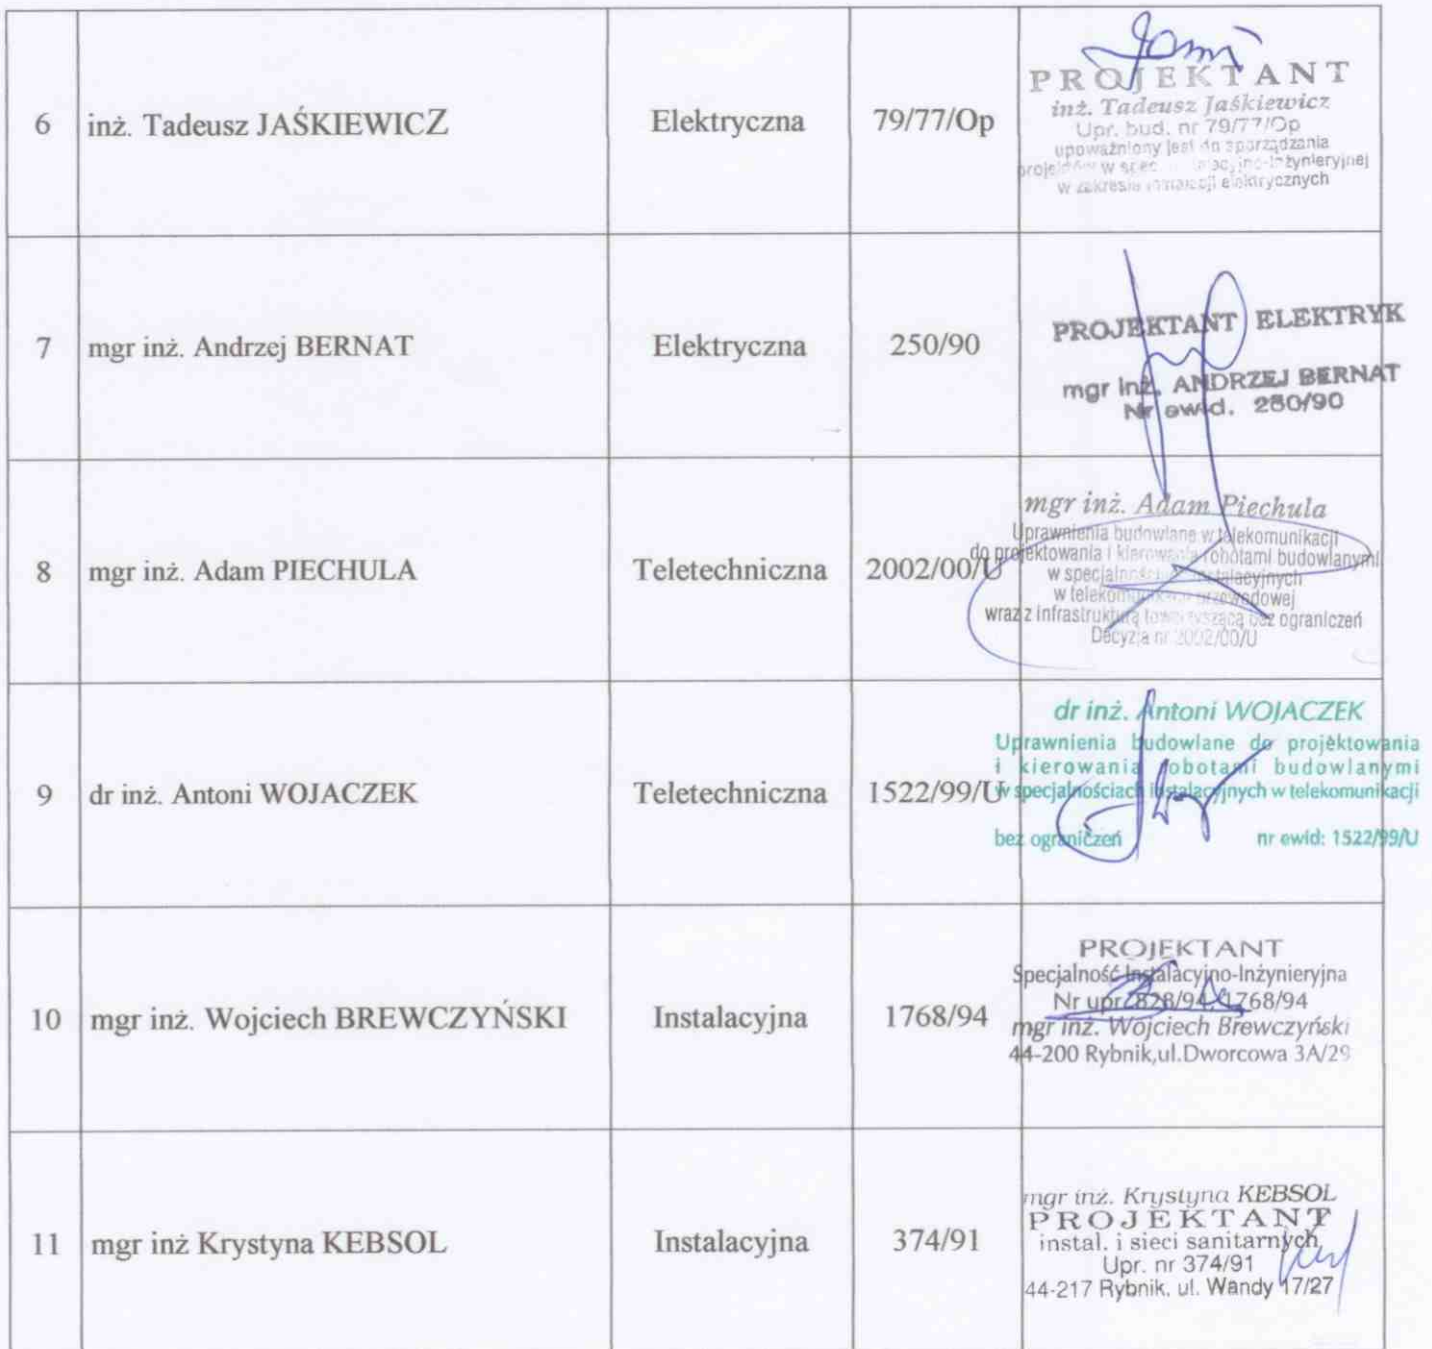 6 inż. Tadeusz JAŚKIEWICZ Elektryczna 79/77/Op
PROJEKTANT
inż. Tadeusz Jaśkiewicz
Upr. bud. nr 79/77/Op
upoważniony jest do sporządzania
projektów w spec. -inżynieryjnej
w zakresie instalacji elektrycznych
7 mgr inż. Andrzej BERNAT Elektryczna 250/90
PROJEKTANT ELEKTRYK
mgr inż. ANDRZEJ BERNAT
Nr ewid. 250/90
8 mgr inż. Adam PIECHULA Teletechniczna 2002/00/U
mgr inż. Adam Piechula
Uprawnienia budowlane w telekomunikacji
do projektowania i kierowania robotami budowlanymi
w specjalnościach instalacyjnych
w telekomunikacji przewodowej
wraz z infrastrukturą towarzyszącą bez ograniczeń
Decyzja nr 2002/00/U
9 dr inż. Antoni WOJACZEK Teletechniczna 1522/99/U
dr inż. Antoni WOJACZEK
Uprawnienia budowlane do projektowania
i kierowania robotami budowlanymi
w specjalnościach instalacyjnych w telekomunikacji
bez ograniczeń nr ewid: 1522/99/U
10 mgr inż. Wojciech BREWCZYŃSKI Instalacyjna 1768/94
PROJEKTANT
Specjalność Instalacyjno-Inżynieryjna
Nr upr. 828/94, 1768/94
mgr inż. Wojciech Brewczyński
44-200 Rybnik,ul.Dworcowa 3A/29
11 mgr inż Krystyna KEBSOL Instalacyjna 374/91
mgr inż. Krystyna KEBSOL
PROJEKTANT
instal. i sieci sanitarnych
Upr. nr 374/91
44-217 Rybnik, ul. Wandy 17/27